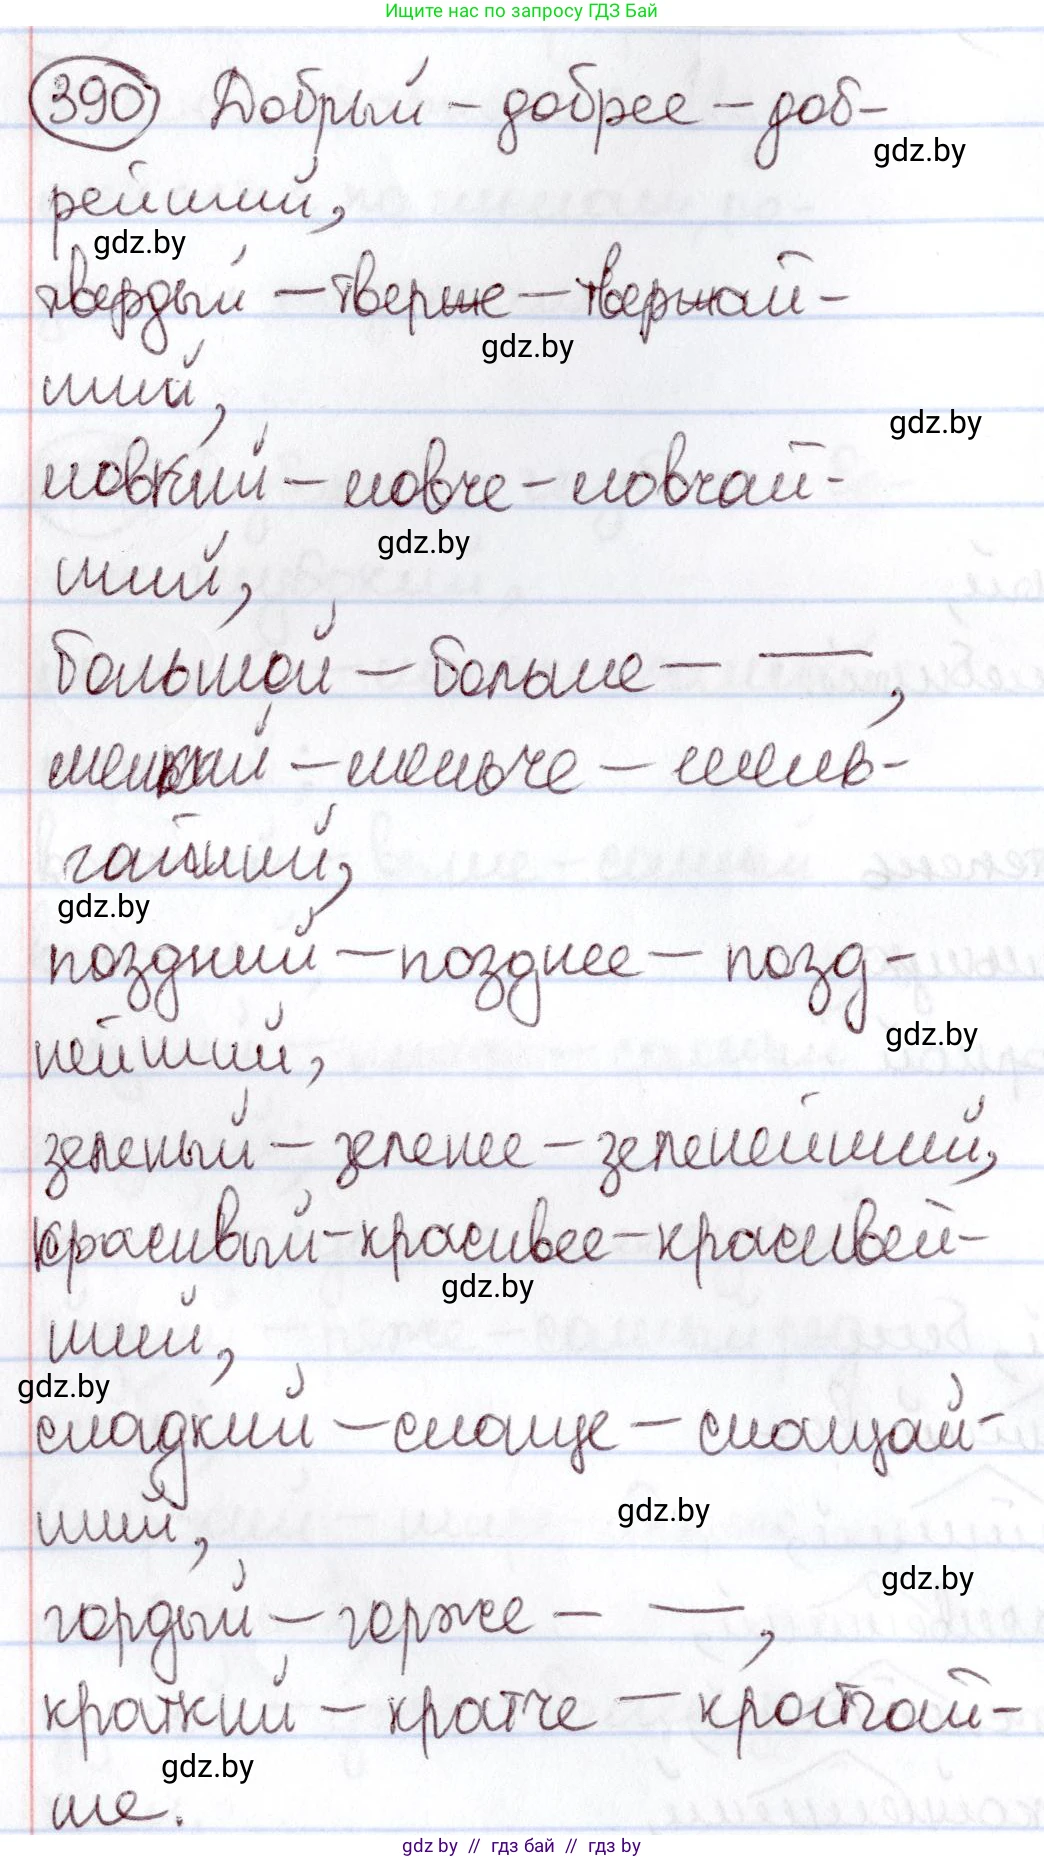 Ищите нас по запросу ГДЗ Бай
390 Добрый – добрее – доб-
gdz.by
рейший,
gdz.by
твердый – тверже – твержай-
gdz.by
ший,
gdz.by
ловкий – ловче – ловчай-
gdz.by
ший,
большой – больше – — ,
мелкий – мельче – мель-
чайший,
gdz.by
поздний – позднее – позд-
gdz.by
нейший,
зеленый – зеленее – зеленейший,
красивый – красивее – красивей-
gdz.by
ший,
gdz.by
сладкий – слаще – слащай-
ший,
gdz.by
gdz.by
гордый – горже – — ,
краткий – кратче – кратчай-
gdz.by
ше.
gdz.by // гдз бай // гдз by